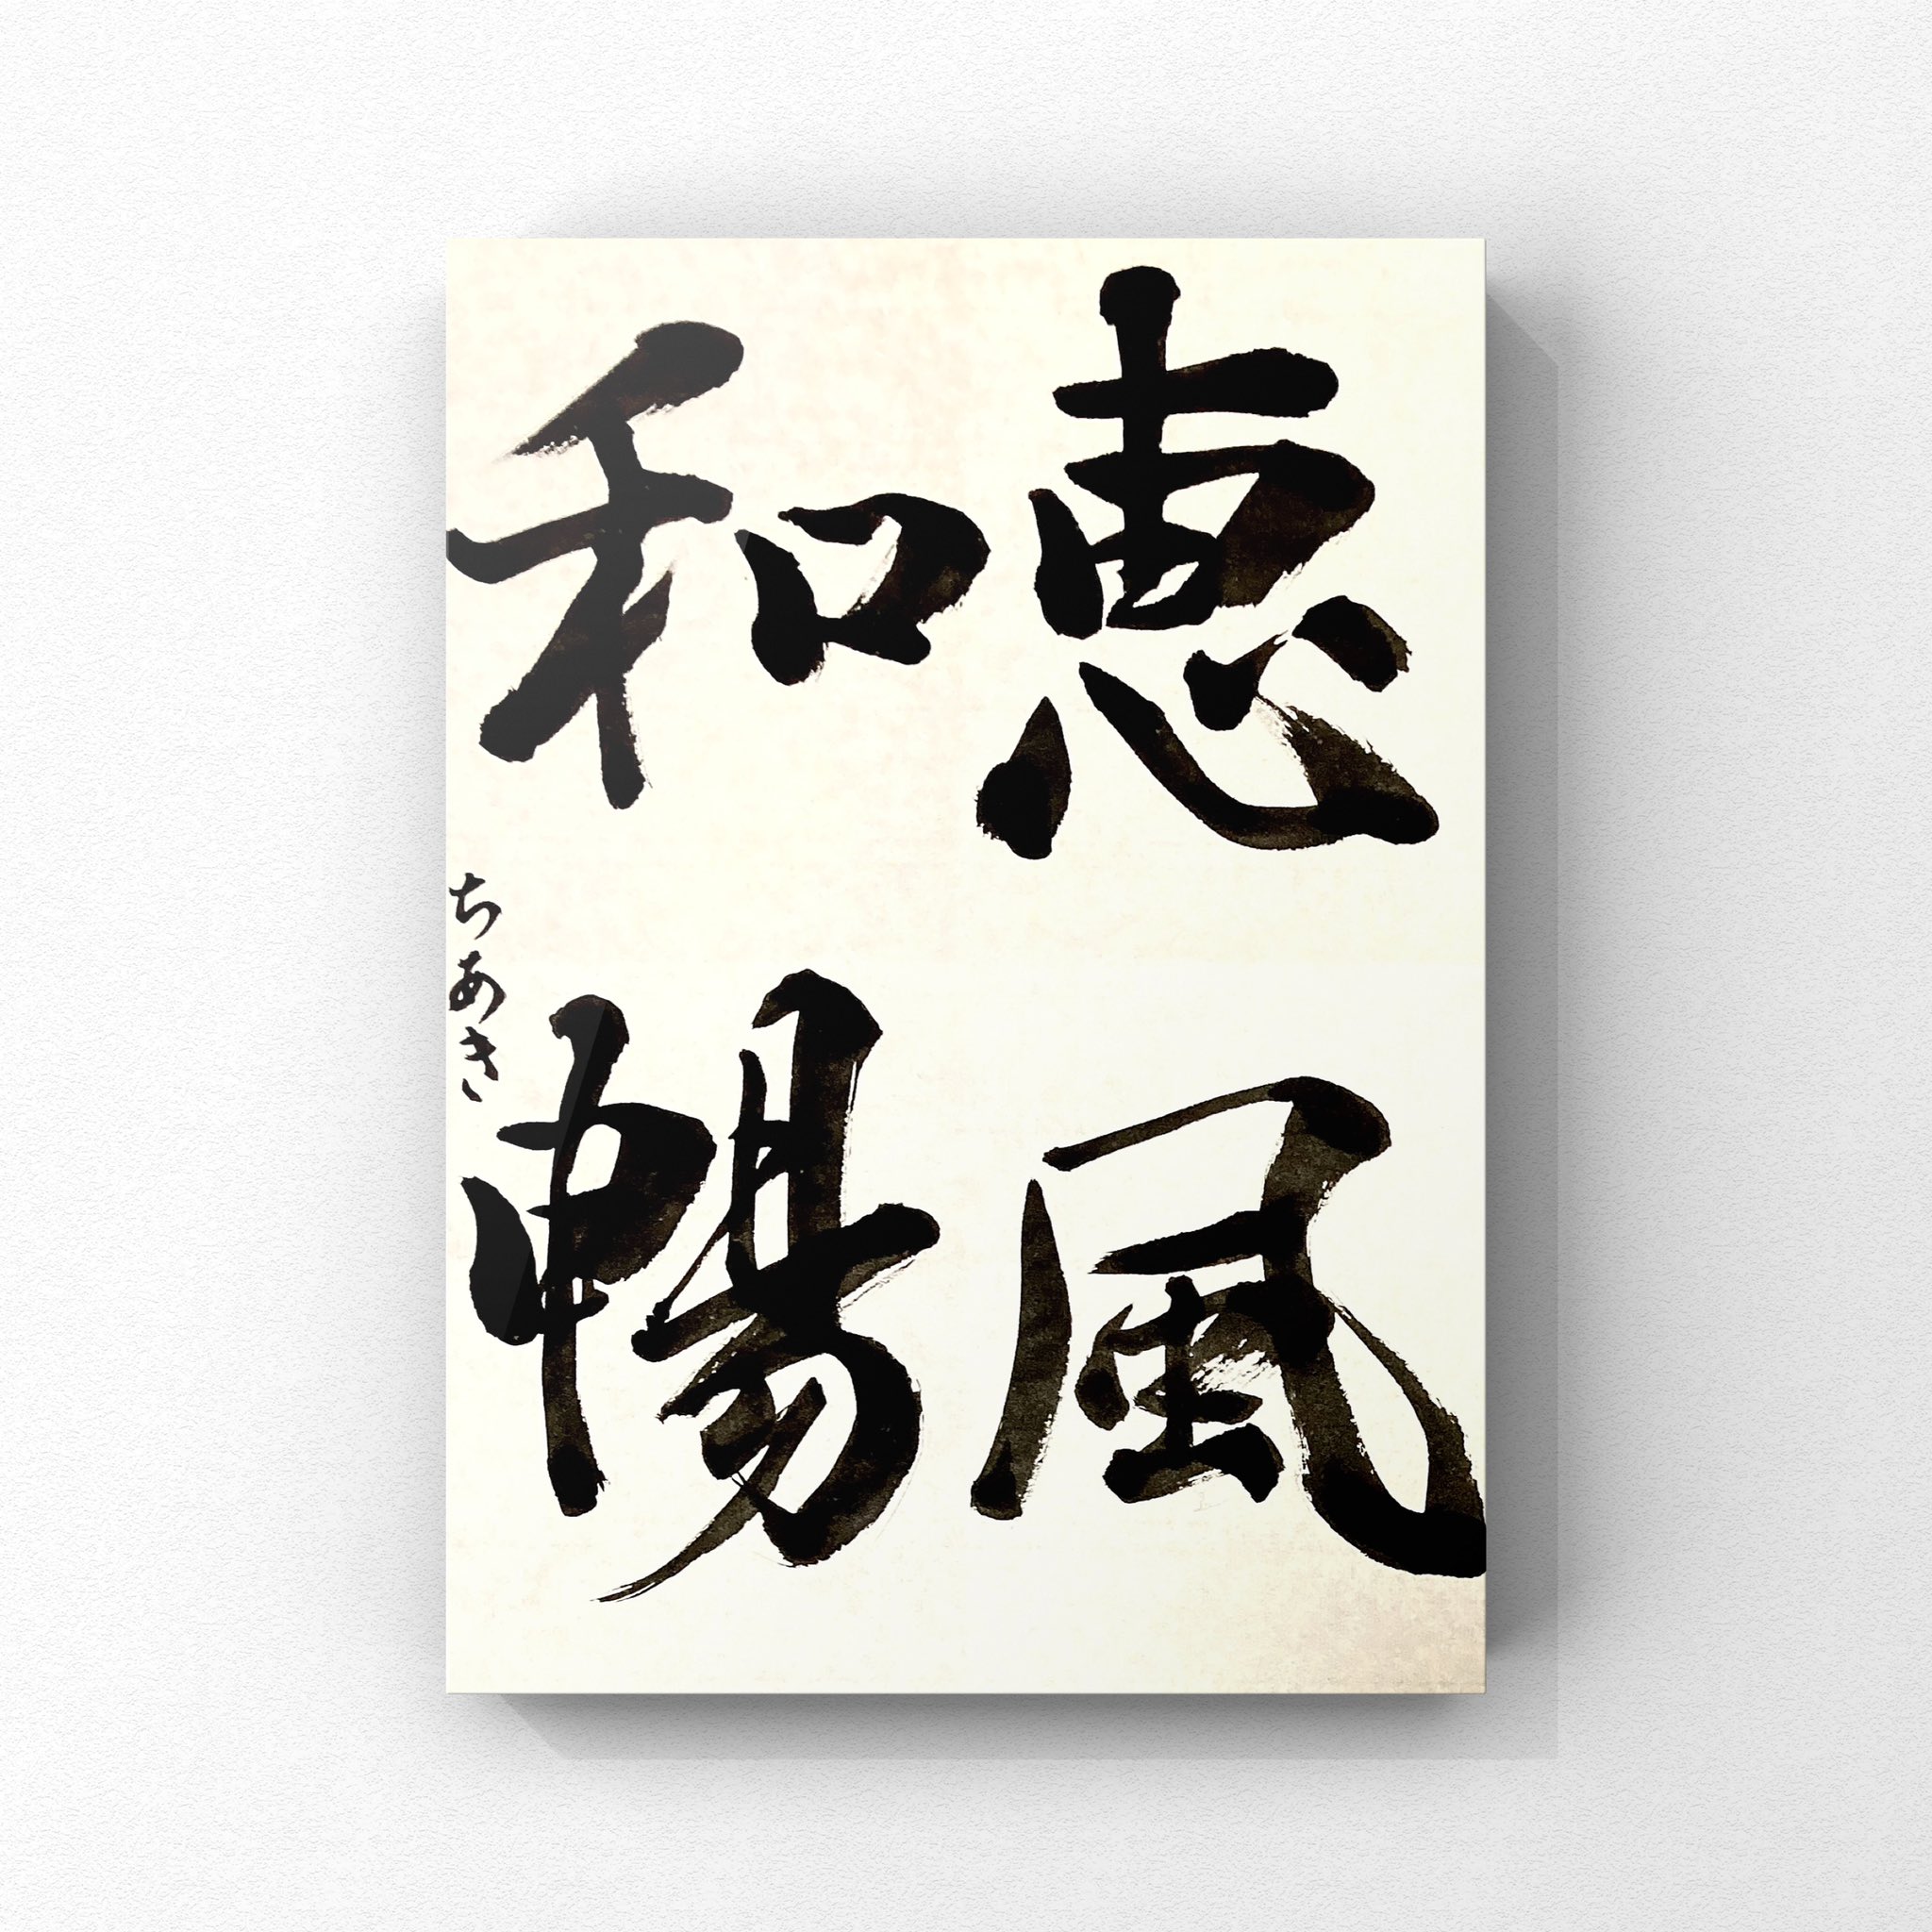 恵風
和暢
ちあき